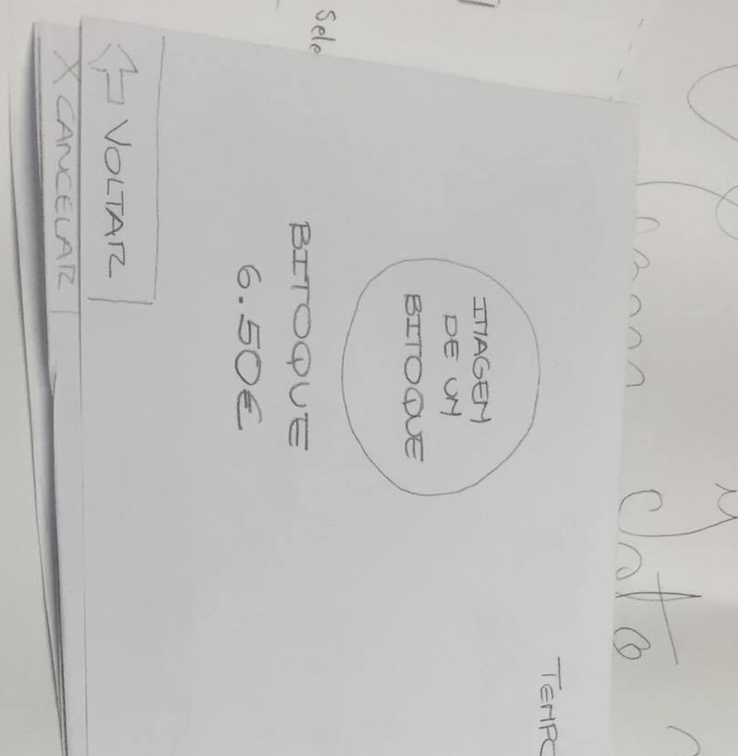 Sele
TEMPO
IMAGEM
DE UM
BITOQUE
BITOQUE
6.50€
VOLTAR
X CANCELAR